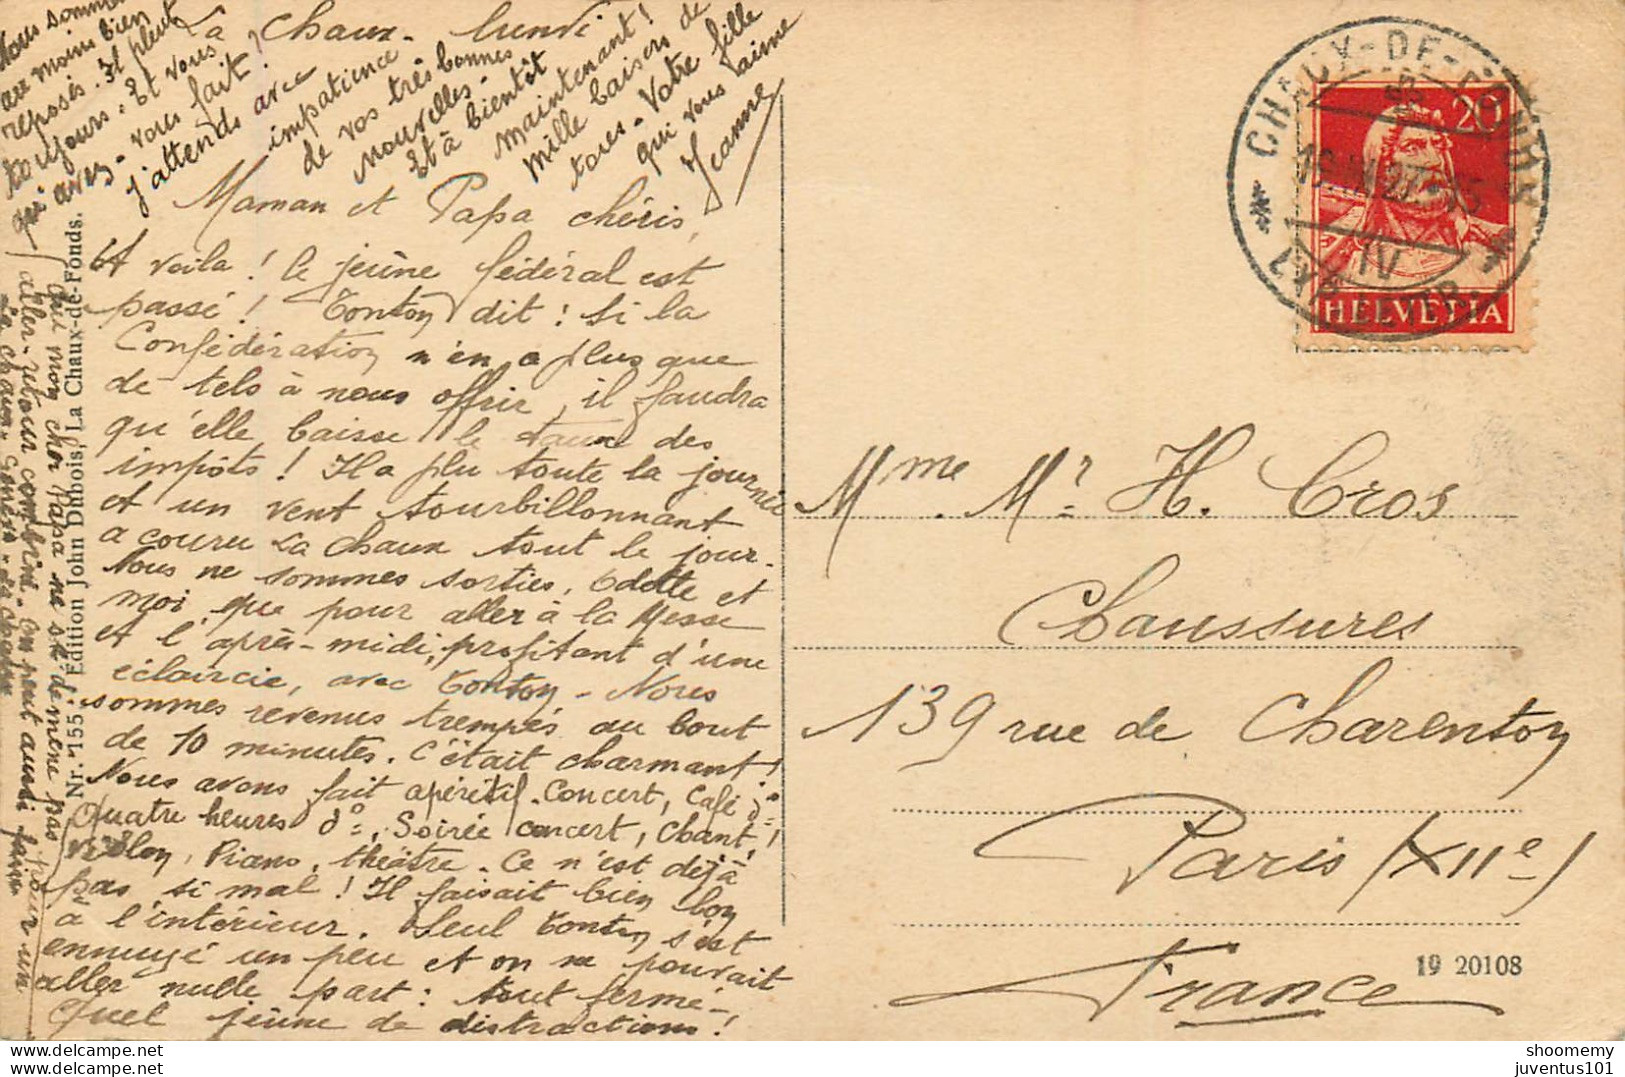 La Chaux - lundi
Maman et Papa chéris,
Et voila ! le jeûne fédéral est
passé ! Tonton dit : si la
Confédération n'en a plus que
de tels à nous offrir, il faudra
qu'elle baisse le taux des
impôts ! Il a plu toute la journée
et un vent tourbillonnant
a couru La Chaux tout le jour.
Nous ne sommes sorties, Odette et
moi, que pour aller à la Messe
et l'après-midi, profitant d'une
éclaircie, avec Tonton - Nous
sommes revenus trempés au bout
de 10 minutes. C'était charmant !
Nous avons fait apéritif-concert, café dº
Quatre heures dº, Soirée concert, chant,
violon, Piano, théâtre. Ce n'est déjà
pas si mal ! Il faisait bien bon
à l'intérieur. Seul Tonton s'est
ennuyé un peu et on ne pouvait
aller nulle part : tout fermé -
Quel jeûne de distractions !
Que mon cher Papa ne se démène pas pour un
aller-retour combiné - on peut aussi faire
La Chaux - Genève - La Chaux
Nous sommes
au moins bien
reposés. Il pleut
toujours. Et vous
qu'avez-vous fait ?
J'attends avec
impatience
de vos très bonnes
nouvelles -
Et à bientôt
maintenant !
Mille baisers de
tous - Votre fille
qui vous aime
Jeanne
Nr. 155. Edition John Dubois, La Chaux-de-Fonds.
CHAUX-DE-FONDS
IV
20
HELVETIA
Mme. Mr H. Cros
Chaussures
139 rue de Charenton
Paris (XIIe)
France
19 20108
shoomemy
juventus101